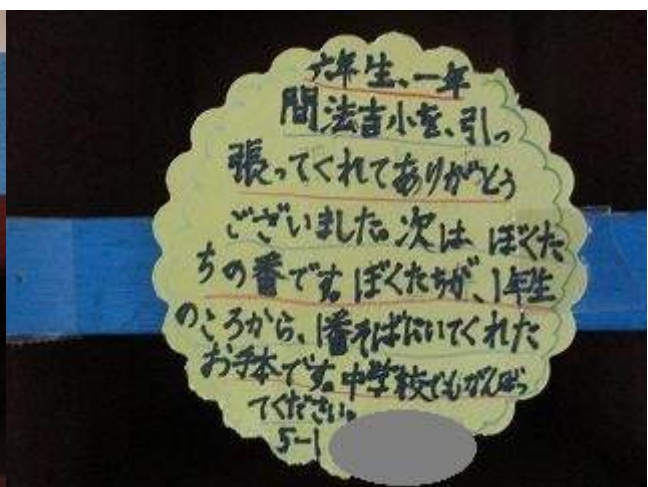 六年生、一年
間法吉小を、引っ
張ってくれてありがとう
ございました。次は ぼくた
ちの番です。ぼくたちが、1年生
のころから、1番そばにいてくれた
お手本です。中学校でもがんばっ
てください。
5-1